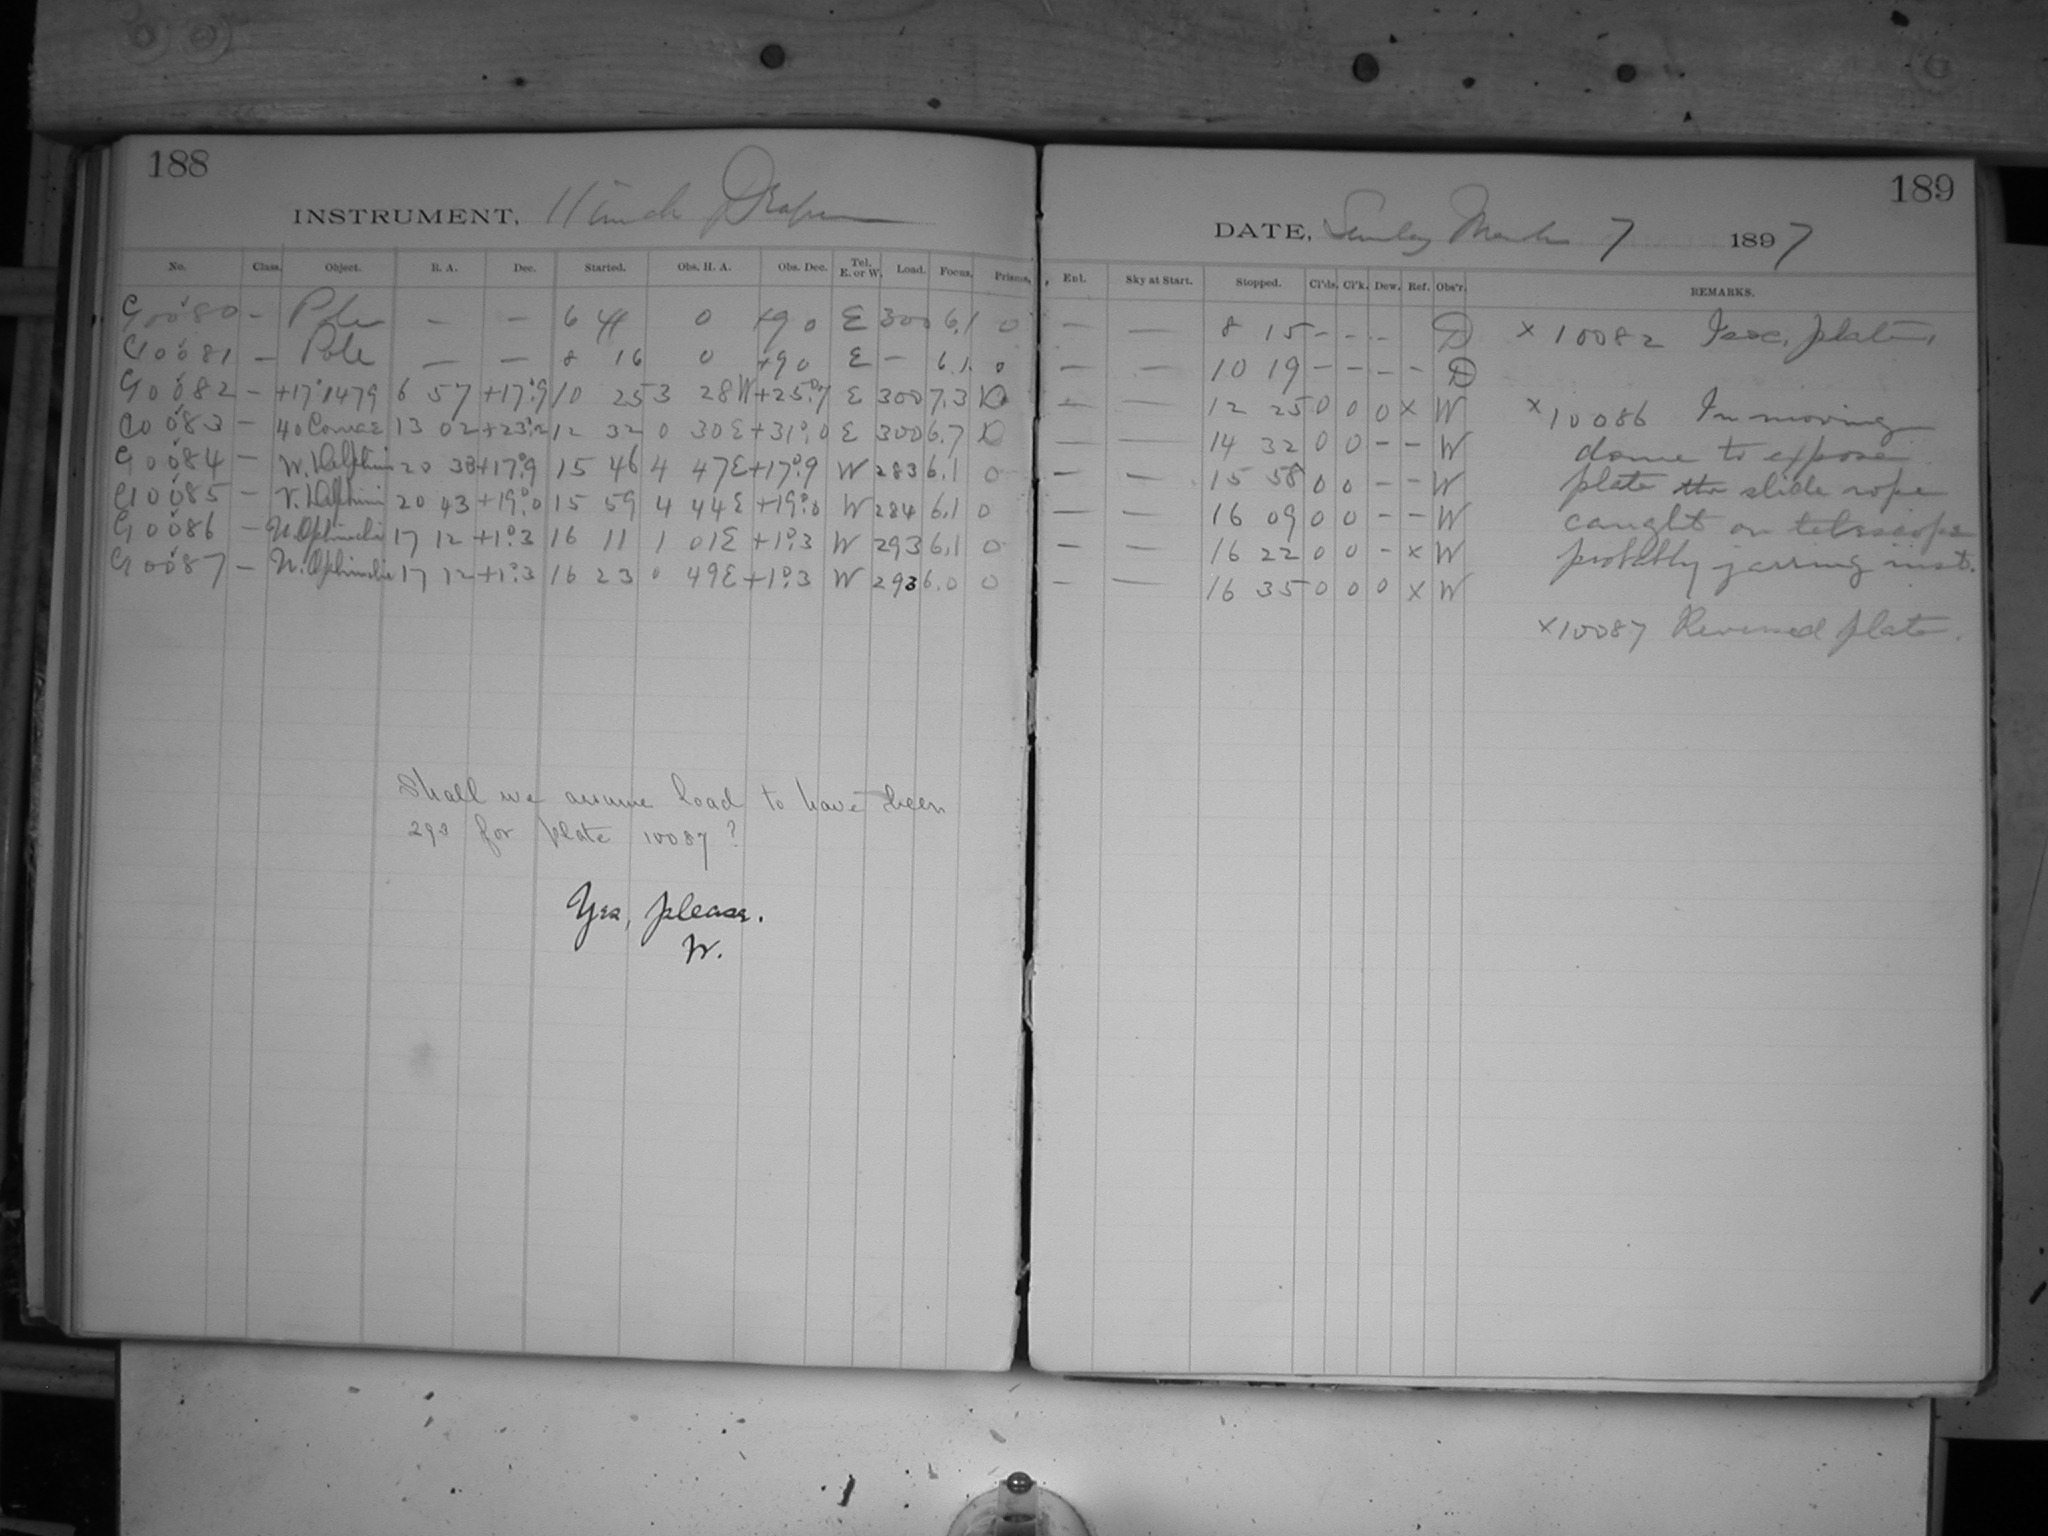 188
INSTRUMENT, 11 inch Draper
No. Class. Object. R. A. Dec. Started. Obs. H. A. Obs. Dec. Tel. E. or W. Load. Focus. Prisms.
C10080 – Pole – – 6 0 +90 E 300 6.1 0
C10081 – Pole – – 8 16 0 +90 E – 6.1 0
C10082 – +17°1479 6 57 +17°.9 10 25 3 28W E 300 7.3 D
C10083 – 40 Comae 13 02 +23°.2 12 32 0 30E +31°.0 E 300 6.7 D
C10084 – W. Delphini 20 33 +17°.9 15 46 4 47E +17°.9 W 283 6.1 0
C10085 – V. Delphini 20 43 +19°.0 15 59 4 44E +19°.0 W 284 6.1 0
C10086 – U. Ophiuchi 17 12 +1°.3 16 11 1 01E +1°.3 W 293 6.1 0
C10087 – U. Ophiuchi 17 12 +1°.3 16 23 0 49E +1°.3 W 293 6.0 0
Shall we assume load to have been
293 for plate 10087?
Yes, please.
W.
189
DATE, Sunday March 7 1897
Enl. Sky at Start. Stopped. Cl'ds. Cl'k. Dew. Ref. Obs'r. REMARKS.
– – 8 15 – – – D × 10082 Isoc. plate.
– – 10 19 – – – – D
– – 12 25 0 0 0 × W × 10086 In moving
– – 14 32 0 0 – – W dome to expose
– – 15 58 0 0 – – W plate the slide rope
– – 16 09 0 0 – – W caught on telescope
– – 16 22 0 0 – × W probably jarring inst.
– – 16 35 0 0 0 × W
×10087 Reversed plate.